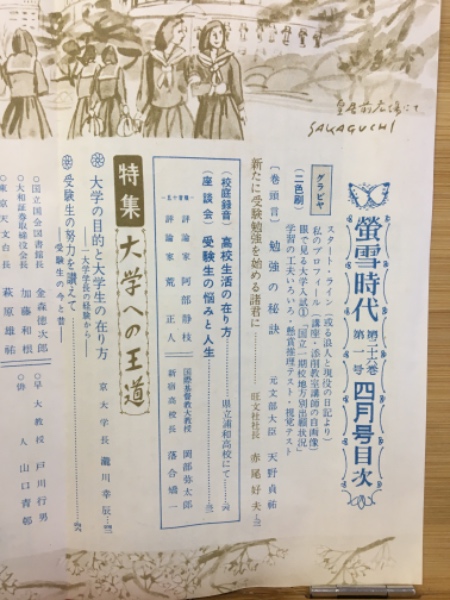 螢雪時代 第二十六巻 第一号 四月号目次
グラビヤ
(二色刷)
スタート・ライン(或る浪人と現役の日記より)
私のプロフィール(講座・添削教室講師の自画像)
眼で見る大学入試①「国立一期校地方別出願状況」
学習の工夫いろいろ・懸賞推理テスト・視覚テスト
(巻頭言) 勉強の秘訣 元文部大臣 天野貞祐
新たに受験勉強を始める諸君に 旺文社社長 赤尾好夫
(校庭録音) 高校生活の在り方 県立浦和高校にて
(座談会) 受験生の悩みと人生
評論家 阿部静枝 国際基督教大教授 岡部弥太郎
評論家 荒正人 新宿高校長 落合矯一
特集 大学への王道
大学の目的と大学生の在り方 京大学長 瀧川幸辰
―大学長の経験から―
受験生の努力を讃えて
―受験生の今と昔―
○国立国会図書館長 金森徳次郎 ○早大教授 戸川行男
○大和証券取締役会長 加藤和根 ○俳人 山口青邨
○東京天文台長 萩原雄祐
SAKAGUCHI